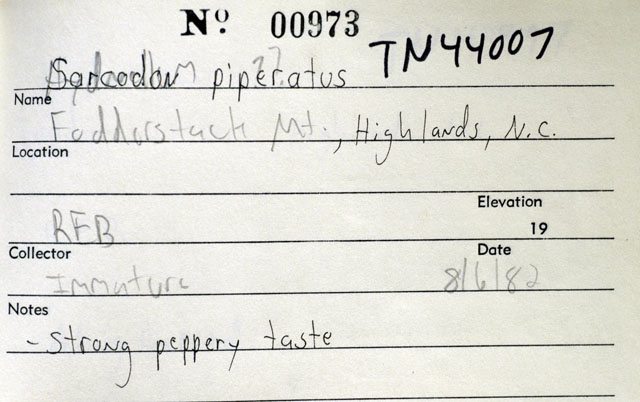 Nº 00973
TN44007
Sarcodon piperatus
Name
Fodderstack Mt., Highlands, N.C.
Location
Elevation
RFB 19
Collector Date
Immature 8/6/82
Notes
- Strong peppery taste